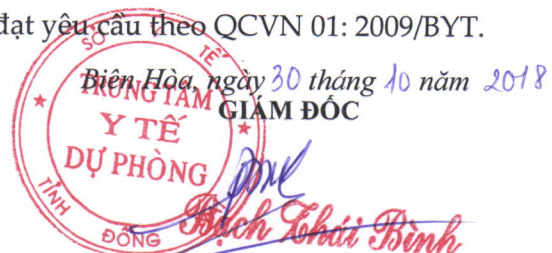 đạt yêu cầu theo QCVN 01: 2009/BYT.
Biên Hòa, ngày 30 tháng 10 năm 2018
GIÁM ĐỐC
SỞ Y TẾ
TRUNG TÂM
Y TẾ
DỰ PHÒNG
TỈNH ĐỒNG
Bạch Thái Bình